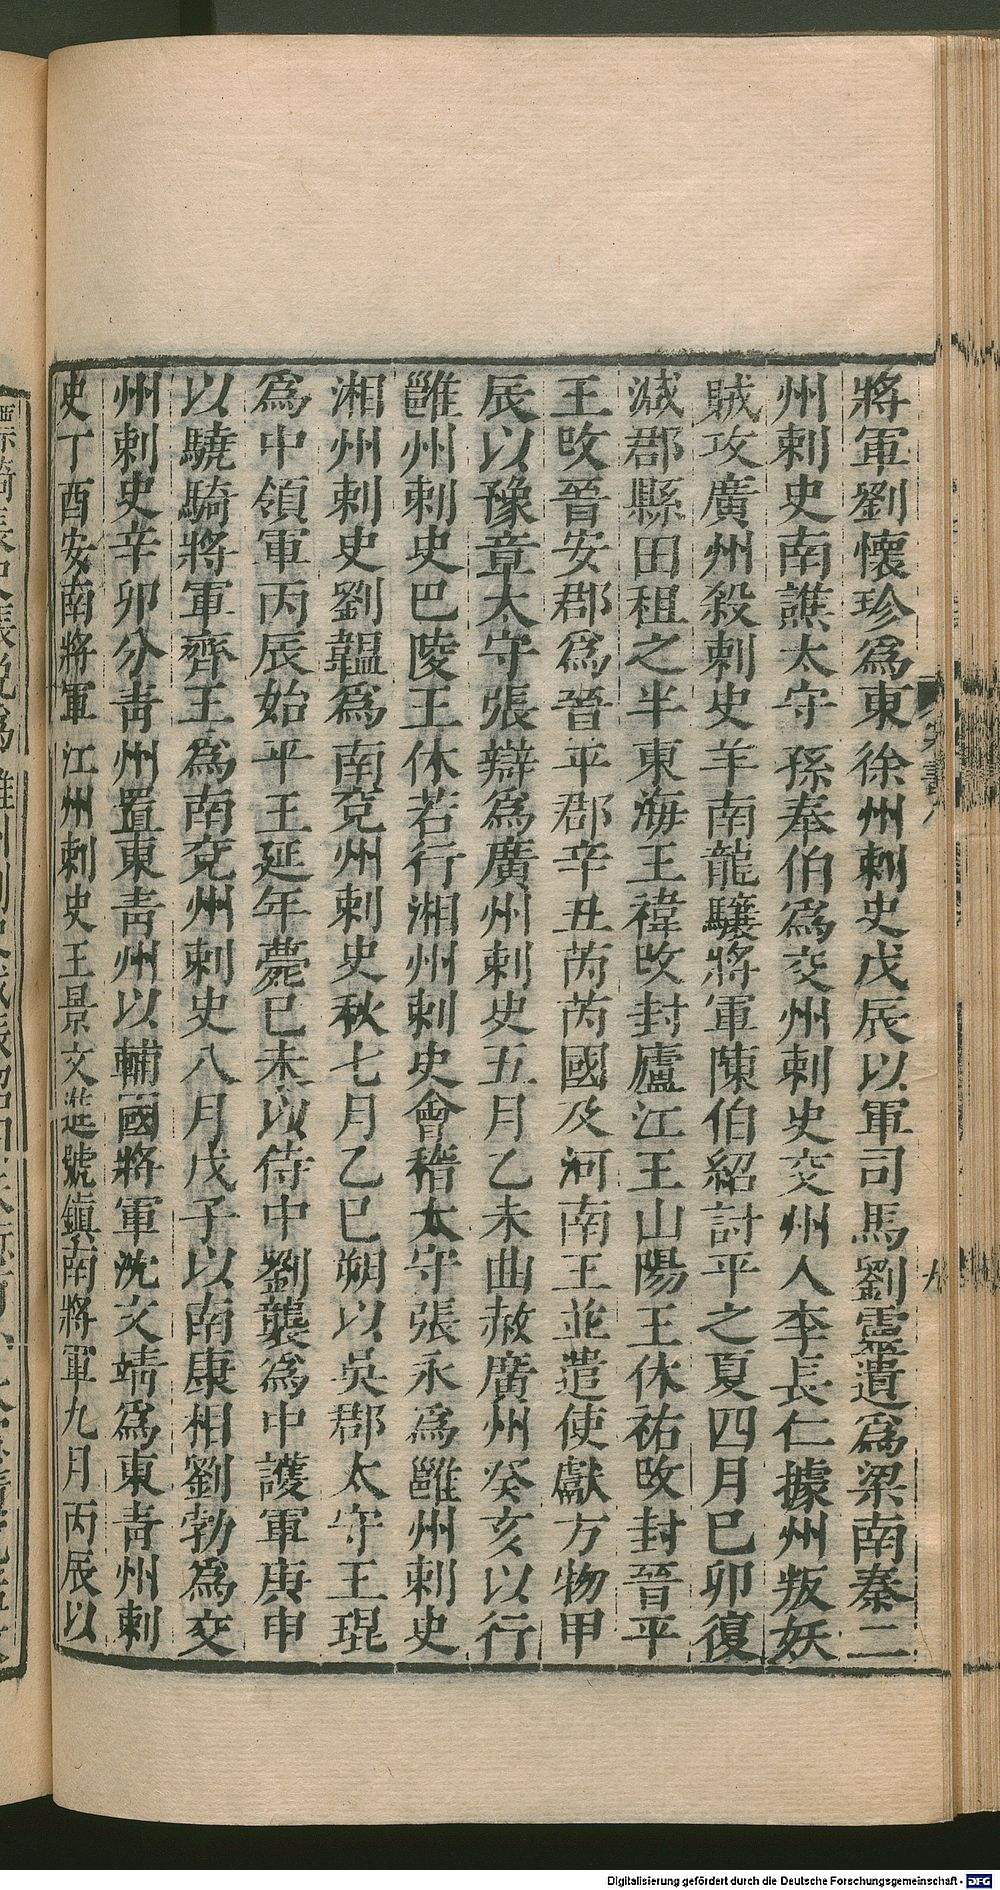 將軍劉懷珍爲東徐州刺史戊辰以軍司馬劉靈遺爲梁南秦二
州刺史南譙太守孫奉伯爲交州刺史交州人李長仁據州叛妖
賊攻廣州殺刺史羊南龍驤將軍陳伯紹討平之夏四月己卯復
減郡縣田租之半東海王禕改封廬江王山陽王休祐改封晉平
王改晉安郡爲晉平郡辛丑芮芮國及河南王並遣使獻方物甲
辰以豫章太守張辯爲廣州刺史五月乙未曲赦廣州癸亥以行
雝州刺史巴陵王休若行湘州刺史會稽太守張永爲雝州刺史
湘州刺史劉韞爲南兗州刺史秋七月乙巳朔以吳郡太守王琨
爲中領軍丙辰始平王延年薨己未以侍中劉襲爲中護軍庚申
以驍騎將軍齊王爲南兗州刺史八月戊子以南康相劉勃爲交
州刺史辛卯分青州置東青州以輔國將軍沈文靖爲東青州刺
史丁酉安南將軍江州刺史王景文進號鎮南將軍九月丙辰以
宋書八
九
Digitalisierung gefördert durch die Deutsche Forschungsgemeinschaft - DFG